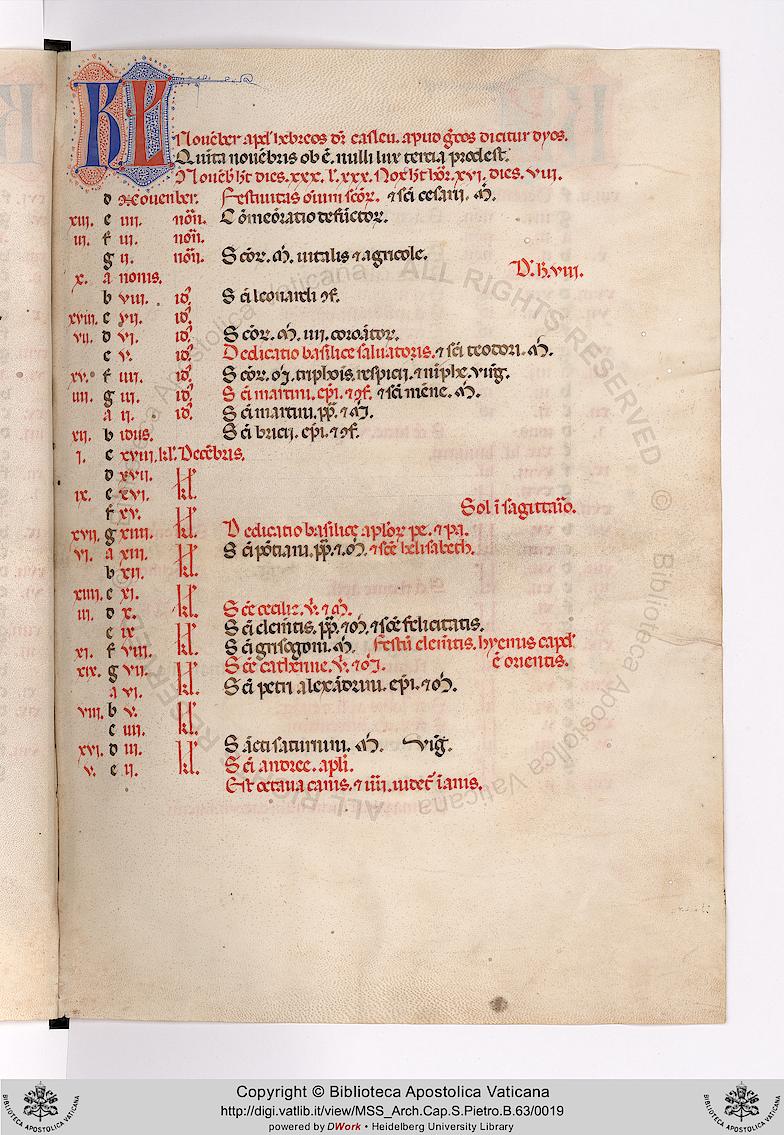 KL
Nouẽber apđ hebreos dr̃ casleu. apud grẽos dicitur dyos.
Quinta nouẽbris ob ẽ. nulli lux tercia prodest.
Nouẽb̃ ht̃ dies. xxx. l᷑. xxx. Nox ht̃ hor̃. xvi. dies. viii.
d Nouember. Festiuitas oĩum scõr. ⁊ sc̃i cesarii. m̃.
xiii. e iiii. noñ. Cõmeõratio defũctor.
ii. f iii. noñ.
g ii. noñ. Scõr. m̃. uitalis ⁊ agricole.
x. a nonis. D'. h. viii.
b viii. id'. Sc̃i leonardi ꝯf.
xviii. c vii. id'.
vii. d vi. id'. Scõr. m̃. iiii. coronator.
e v. id'. Dedicatio basilice saluatoris. ⁊ sc̃i teodori. m̃.
xv. f iiii. id'. Scõr. m̃. triphois, respicii. ⁊ nĩphe. uirg̃.
iiii. g iii. id'. Sc̃i martini. ep̃i. ⁊ ꝯf. ⁊ sc̃i mẽne. m̃.
a ii. id'. Sc̃i martini. pp̃. ⁊ m̃.
xii. b idus. Sc̃i bricii. ep̃i. ⁊ ꝯf.
i. c xviii. kl'. Decẽbris.
d xvii. kl'.
ix. e xvi. kl'.
f xv. kl'. Sol ĩ sagittario.
xvii. g xiiii. kl'. Dedicatio basilice aplõr pe. ⁊ pa.
vi. a xiii. kl'. Sc̃i põtiani. pp̃. ⁊ m̃. ⁊ sc̃e helisabeth.
b xii. kl'.
xiiii. c xi. kl'.
iii. d x. kl'. Sc̃e cecilie. v̾. ⁊ m̃.
e ix kl'. Sc̃i clemẽtis. pp̃. ⁊ m̃. ⁊ sc̃e felicitatis.
xi. f viii. kl'. Sc̃i grisogoni. m̃. Festũ clemẽtis. hyemis capđ
xix. g vii. kl'. Sc̃e catherine. v̾. ⁊ m̃. ẽ orientis.
a vi. kl'. Sc̃i petri alexãdrini. ep̃i. ⁊ m̃.
viii. b v. kl'.
c iiii. kl'.
xvi. d iii. kl'. Sãcti saturnini. m̃. Vig̃.
v. e ii. kl'. Sc̃i andree. apl̃i.
Copyright © Biblioteca Apostolica Vaticana
http://digi.vatlib.it/view/MSS_Arch.Cap.S.Pietro.B.63/0019
powered by DWork • Heidelberg University Library
BIBLIOTECA APOSTOLICA VATICANA
BIBLIOTECA APOSTOLICA VATICANA
ALL RIGHTS RESERVED © Biblioteca Apostolica Vaticana